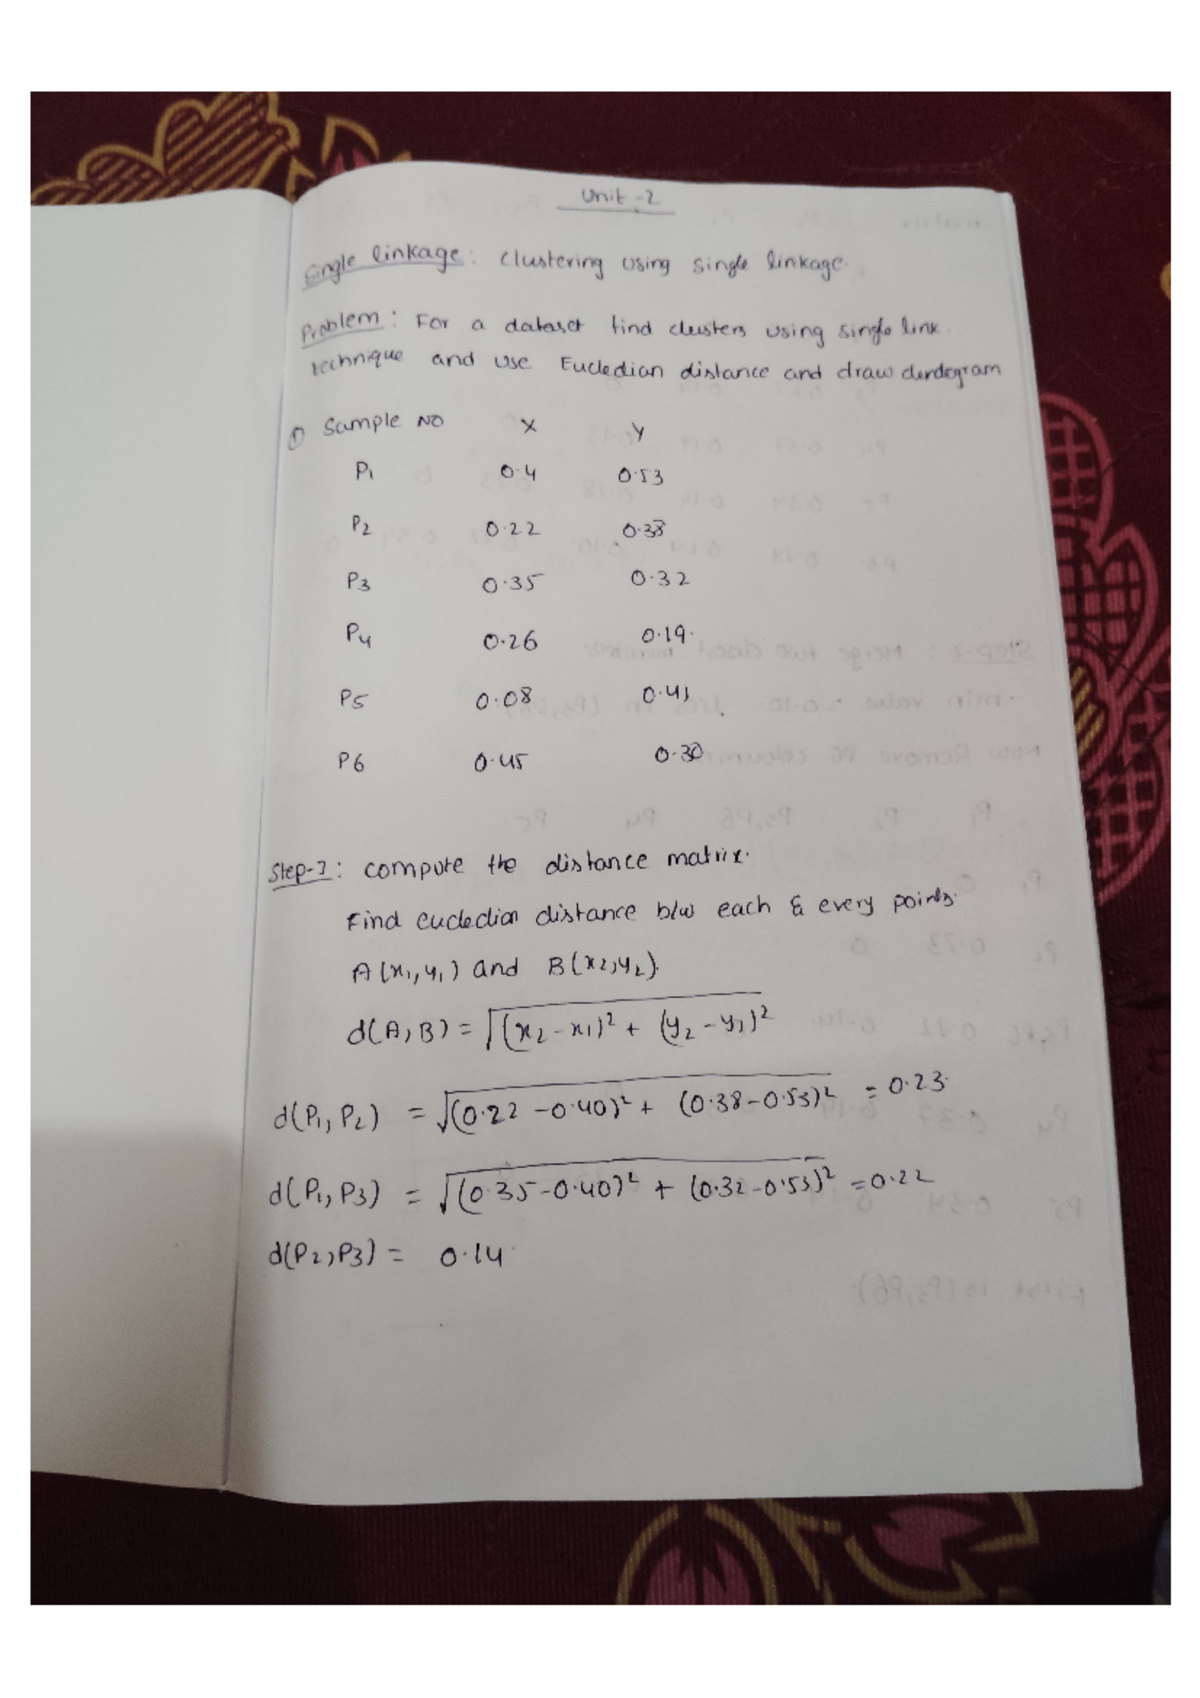 Unit-2
Single linkage: Clustering using single linkage.
Problem: For a dataset find clusters using single link
technique and use Eucledian distance and draw dendogram
① Sample No X Y
P1 0.4 0.53
P2 0.22 0.38
P3 0.35 0.32
P4 0.26 0.19
P5 0.08 0.41
P6 0.45 0.30
Step-1: compute the distance matrix.
Find eucledian distance b/w each & every points.
A(x1,y1) and B(x2,y2).
d(A,B) = √(x2-x1)² + (y2-y1)²
d(P1,P2) = √(0.22-0.40)² + (0.38-0.53)² = 0.23
d(P1,P3) = √(0.35-0.40)² + (0.32-0.53)² = 0.22
d(P2,P3) = 0.14